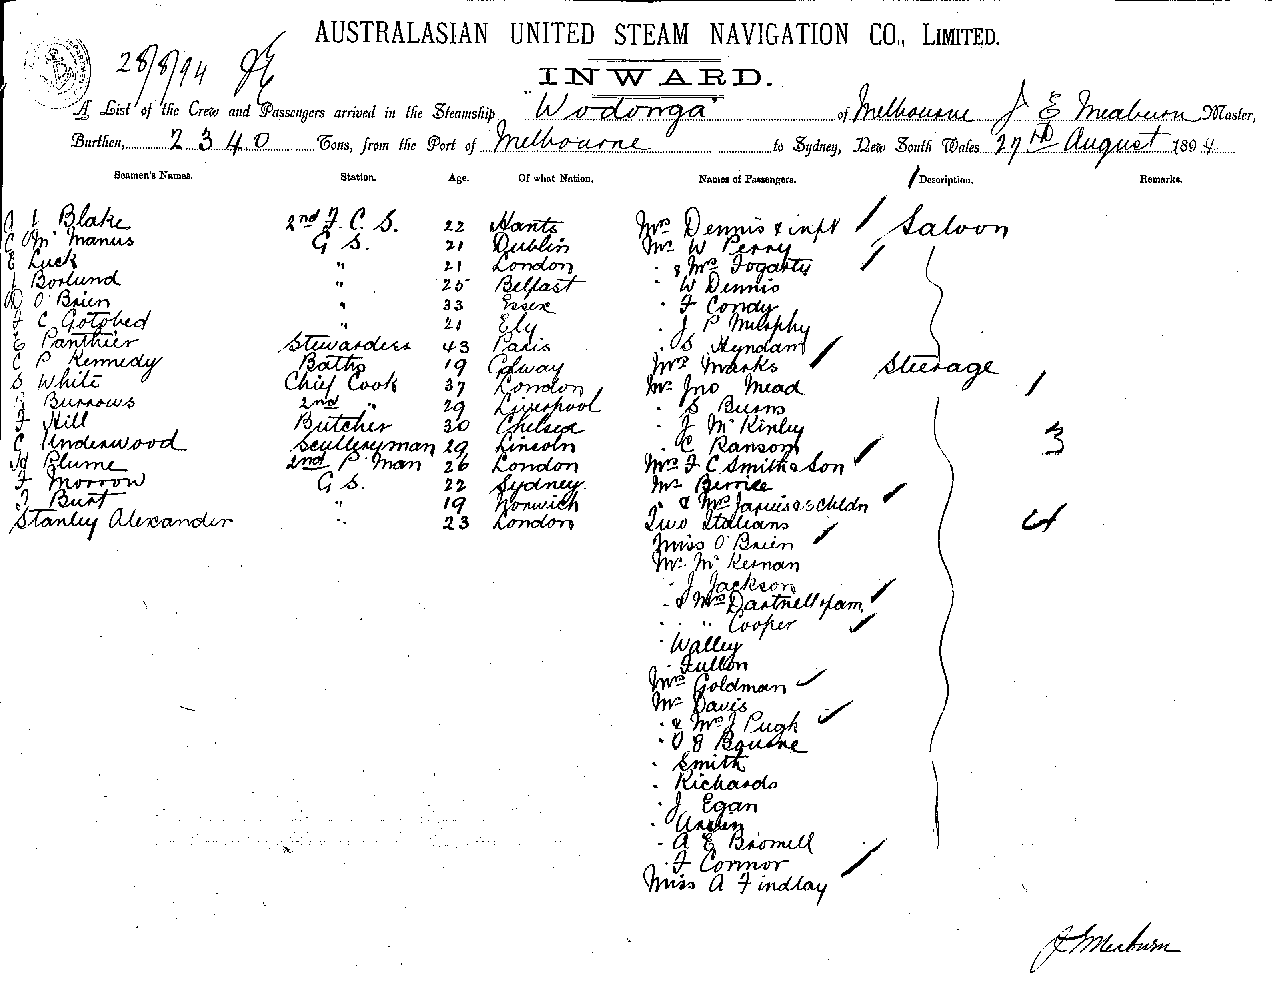 AUSTRALASIAN UNITED STEAM NAVIGATION CO., LIMITED.
28/8/94
INWARD.
A List of the Crew and Passengers arrived in the Steamship "Wodonga" of Melbourne J E Meaburn Master,
Burthen, 2340 Tons, from the Port of Melbourne to Sydney, New South Wales 27th August 1894
Seamen's Names. Station. Age. Of what Nation. Names of Passengers. Description. Remarks.
Blake 2nd F. C. S. 22 Hants Mrs Dennis & inft Saloon
McManus G S. 21 Dublin Mr W Perry
E Luck " 21 London " & Mrs Fogarty
J Borlund " 25 Belfast " W Dennis
D O'Brien " 33 Essex " F Condy
F C Gotobed " 21 Ely " J P Murphy
E Panthier Stewardess 43 Paris " S Hyndam
C P Kennedy Baths 19 Galway Mrs Marks Steerage
S White Chief Cook 37 London Mr Jno Mead 1
Burrows 2nd " 29 Liverpool " S Burns
F Hill Butcher 30 Chelsea " J McKinley
C Underwood Sculleryman 29 Lincoln " C Ransom 3
Blume 2nd P. Man 26 London Mrs F C Smith & Son
F Morrow G S. 22 Sydney Mr Berrice
F Burt " 19 Norwich " & Mrs Jarvis & 3 childn
Stanley Alexander " 23 London Two Italians 4
Miss O'Brien
Mr McKernan
" J Jackson
" & Mrs Dartnell & fam
" " " Cooper
" Walley
" Fullon
Mrs Goldman
Mr Davis
" & Mrs J Pugh
" O J Bourne
" Smith
" Richards
" J Egan
" A E Bromell
" F Connor
Miss A Findlay
J E Meaburn